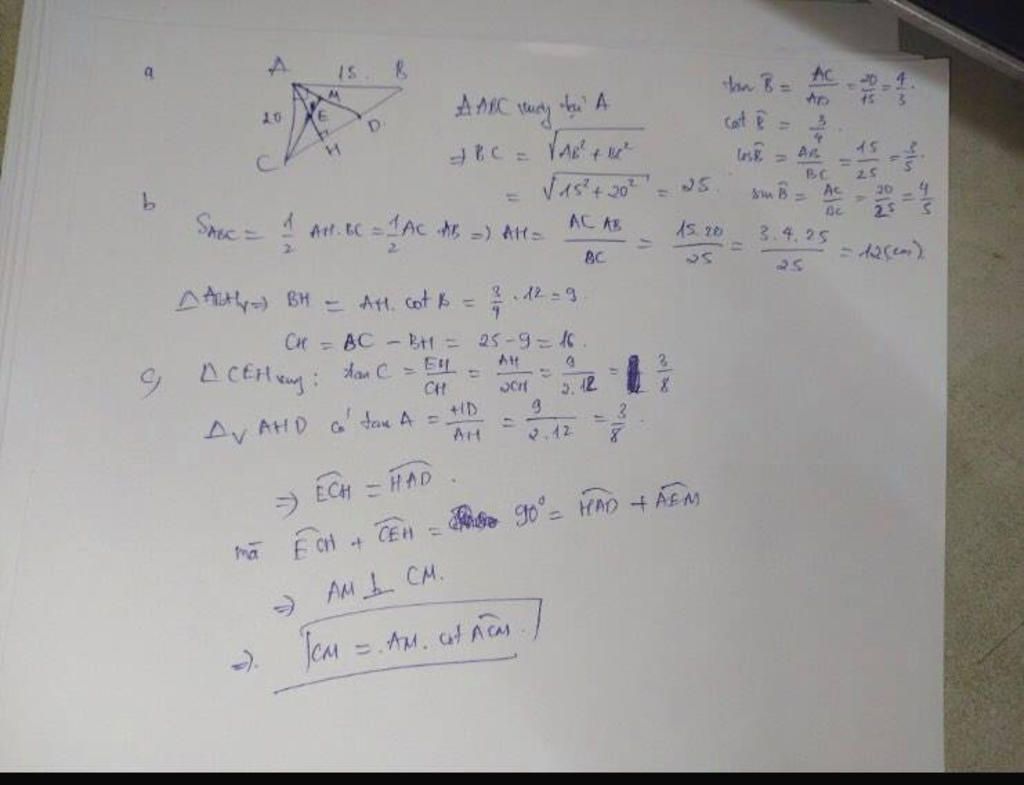 a
A 15. B
20 M E D
C H
ΔABC vuông tại A
=> BC = √(AB² + AC²)
= √(15² + 20²) = 25.
tan B̂ = AC/AB = 20/15 = 4/3.
cot B̂ = 3/4.
cos B̂ = AB/BC = 15/25 = 3/5.
sin B̂ = AC/BC = 20/25 = 4/5
b
S_ABC = 1/2 AH.BC = 1/2 AC.AB => AH = AC AB/BC = 15.20/25 = 3.4.25/25 = 12(cm).
ΔABHv => BH = AH. cot B = 3/4 . 12 = 9.
CH = BC - BH = 25 - 9 = 16.
c, ΔCEH vuông: tan C = EH/CH = AH/2CH = 9/2.12 = 3/8
Δv AHD có tan A = HD/AH = 9/2.12 = 3/8.
=> ECH = HAD.
mà ECH + CEH = 90° = HAD + AEM
=> AM ⊥ CM.
=> CM = AM. cot ACM.